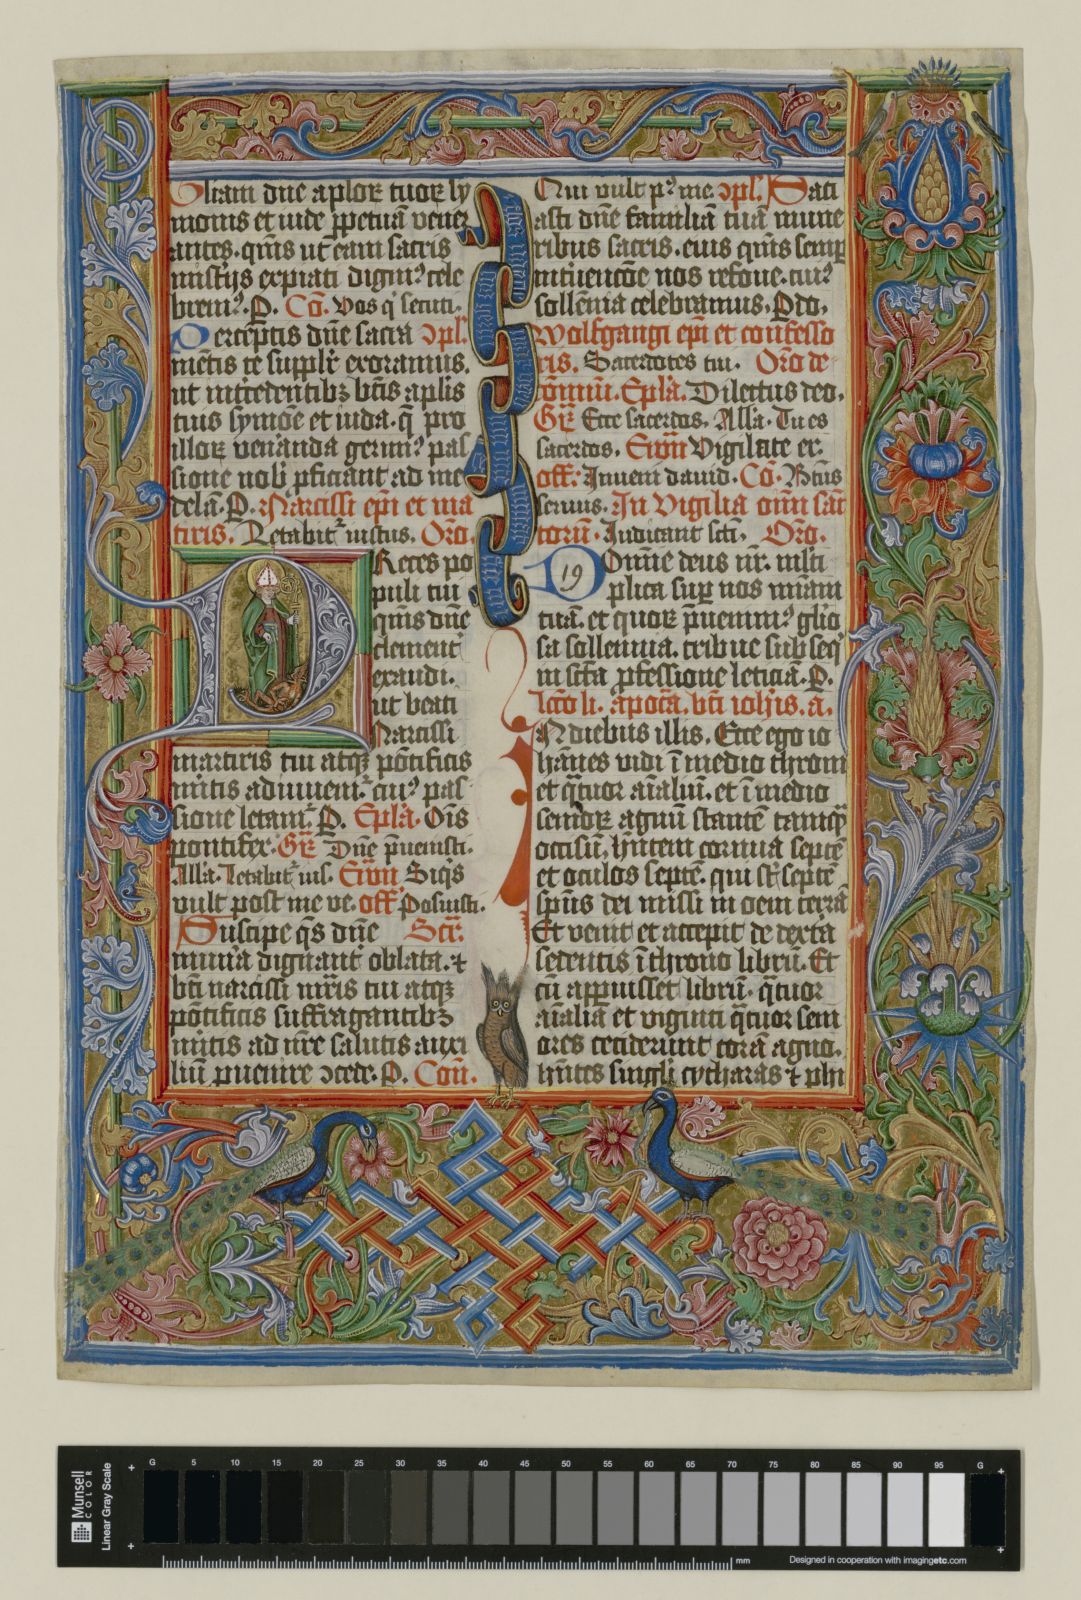 Gliam dne aploꝝ tuoꝝ ſy
monis et iude ꝑpetuā vener
antes. qm̄s ut eam ſacris
miſtijs expiati dignⁱ⁹ cele
brem⁹. P. Cō. Vos qͥ ſecuti.
Perceptis dn̄e ſacra ꝯpl.
mētis te ſupplr̄ exoramus.
ut int̄cedentibꝫ btīs aplis
tuis ſymōe et iuda. q̄ pro
illoꝝ ven̄anda gerim⁹ paſ
ſione nob̄ ꝓficiant ad me
delā. P. Narciſſi ep̄i et ma
tiris. Letabit᷑ iuſtus. Oro.
Preces po
puli tui
qm̄s dn̄e
clement᷑
exaudi.
ut beati
Narciſſi
martiris tui atqꝫ pōtificis
m̄itis adiuuem᷑. cui⁹ paſ
ſione letam᷑. P. Epl̄a. Oīs
pontifex. Gr̄. Dn̄e p̄ueniſti.
Alla. Letabit᷑ iuſ. Ewm̄ Siq̄s
vult poſt me ve. off Poſuiſti.
Suſcipe q̄s dn̄e Scr̄.
mun̄a dignant᷑ oblata. ⁊
bt̄i narciſſi mr̄is tui atqꝫ
pōtificis ſuffragantibꝫ
m̄itis ad nr̄e ſalutis auxi
lium ꝓuenire ꝯcede. P. Com̄.
Qui vult p⁹ me ꝯpl. Sati
aſti dn̄e familiā tuā mune
ribus ſacris. eius qm̄s ſemp
int̄uencōe nos refoue. cui⁹
ſollēnia celebramus. P dō.
Wolfgangi ep̄i et confeſſo
ris. Sacerdotes tui. Oro de
cōmuni. Epl̄a. Dilectus deo.
Gr̄ Ecce ſacerdos. Alla. Tu es
ſacerdos. Ewm̄ Vigilate ec.
off. Inueni dauid. Cō. Btūs
ſeruus. In Vigilia omī ſan̄
torū. Iudicant ſcti. Oro.
Domīe deus nr̄. mlti
19
plica ſup nos mīam
tuā. et quoꝝ p̄uenim⁹ glio
ſa ſollemnia. tribue ſubſeqͥ
in ſcta ꝓfeſſione leticiā. P.
lc̄co li. apoca. bt̄i iohīs. a.
In diebus illis. Ecce ego io
hānes vidi ī medio throni
et q̄tuor aīaliū. et ī medio
ſenioꝝ agnū ſtantē tamqͣ
occiſū. hn̄tem cornua ſeptē
et oculos ſeptē. qui ſt̄ ſeptē
ſpūs dei miſſi in oem terrā
Et venit et accepit de dextra
ſedentis ī throno librū. Et
cū apꝑuiſſet librū. q̄tuor
aīalia et viginti q̄tuor ſeni
ores ceciderunt corā agno.
hn̄tes ſingl̄i cytharas ⁊ phi
Munsell
COLOR
Linear Gray Scale
G 5 10 15 20 25 30 35 40 45 50 55 60 65 70 75 80 85 90 95 G
mm
Designed in cooperation with imagingetc.com